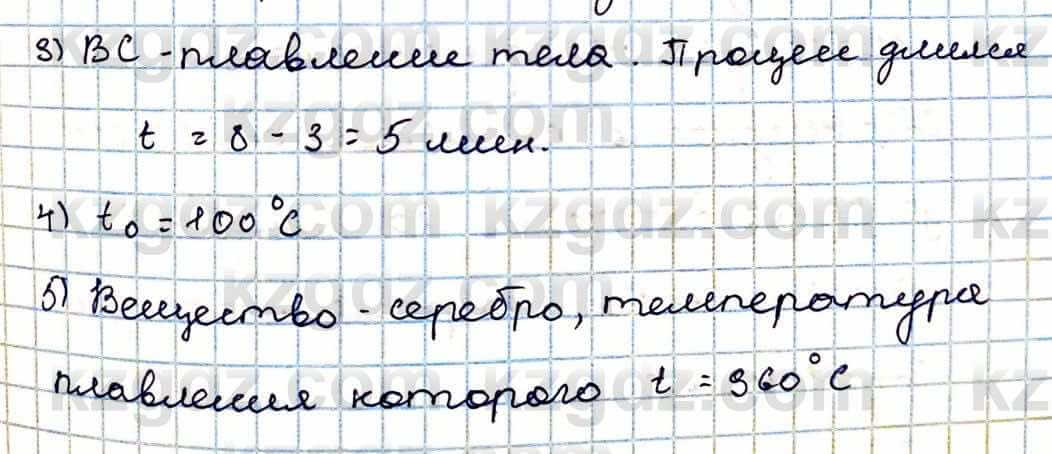 3) BC - плавление тела. Процесс длился
t = 8 - 3 = 5 мин.
4) t₀ = 100°C
5) Вещество - серебро, температура
плавления которого t = 960°C